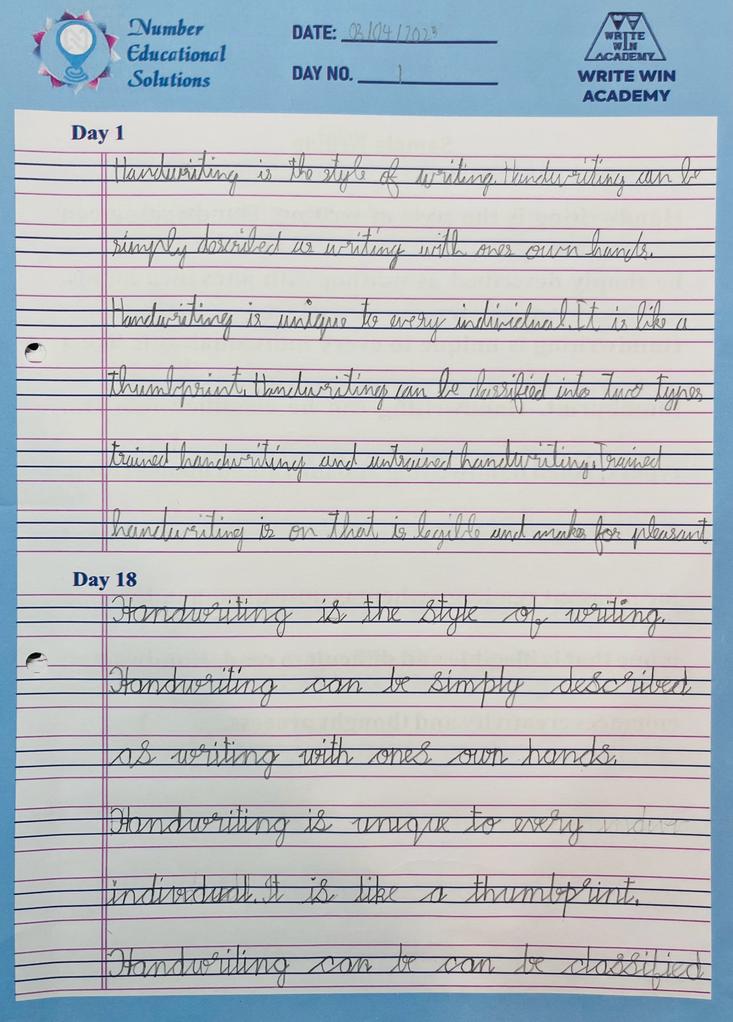 Number
Educational
Solutions
DATE: 03/04/2023
DAY NO. 1
WRITE
WIN
ACADEMY
WRITE WIN
ACADEMY
Day 1
Handwriting is the style of writing. Handwriting can be
simply described as writing with ones own hands.
Handwriting is unique to every individual. It is like a
thumbprint. Handwriting can be classified into Two types
trained handwriting and untrained handwriting. Trained
handwriting is on that is legible and makes for pleasant
Day 18
Handwriting is the style of writing.
Handwriting can be simply described
as writing with ones own hands.
Handwriting is unique to every
individual. It is like a thumbprint.
Handwriting can be can be classified